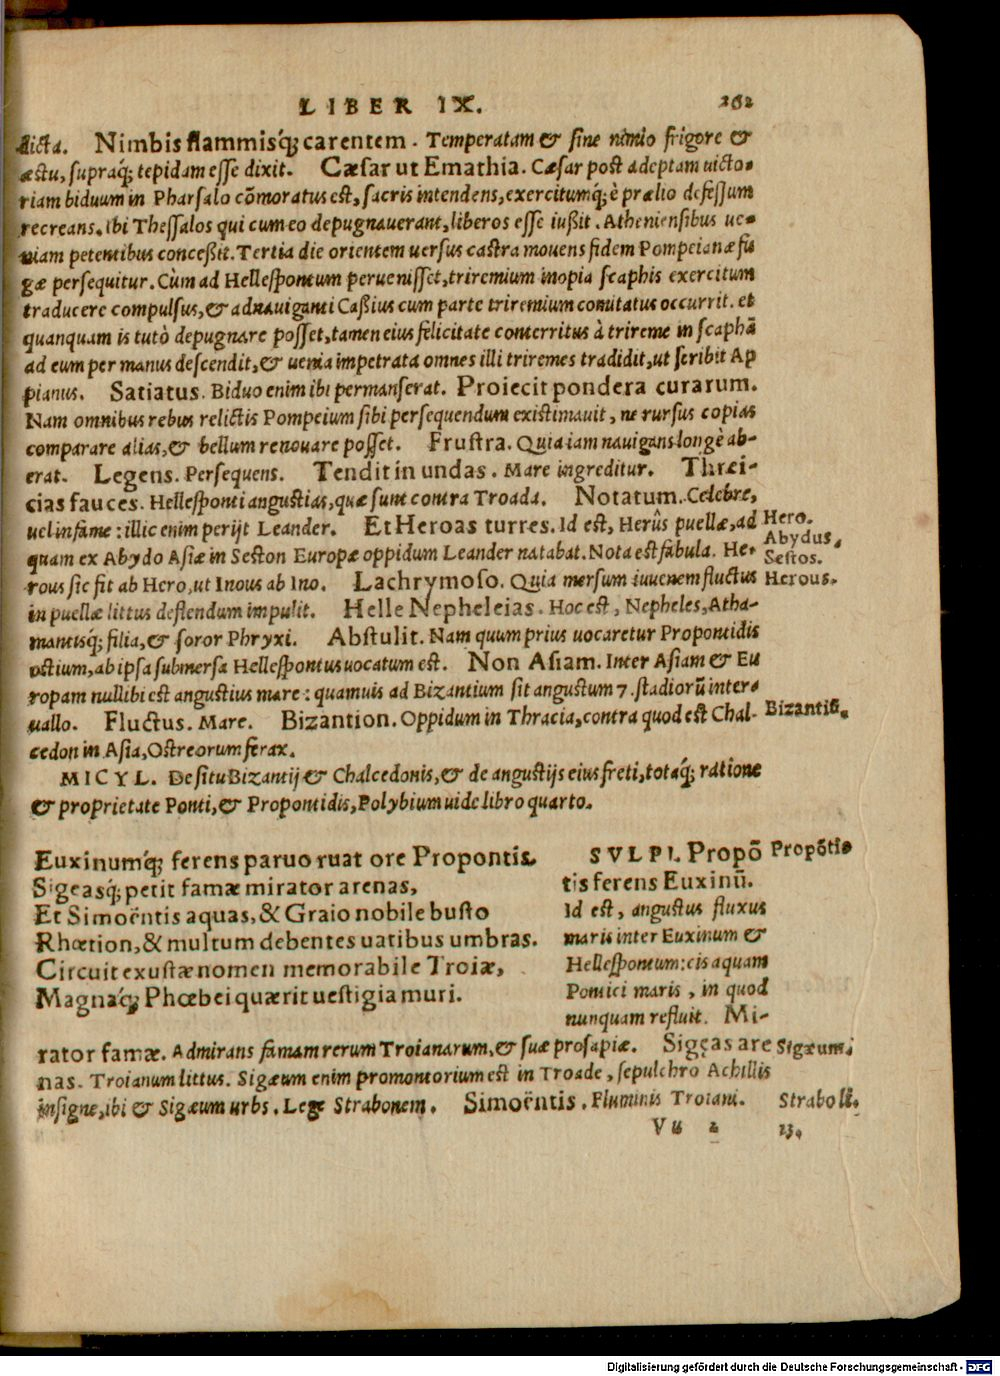 LIBER IX. 262
dicta. Nimbis flammisq́; carentem. Temperatam & sine nimio frigore &
æstu, supraq́; tepidam esse dixit. Cæsar ut Emathia. Cæsar post adeptam uicto-
riam biduum in Pharsalo cõmoratus est, sacris intendens, exercitumq́; è prælio defessum
recreans. Ibi Thessalos qui cum eo depugnauerant, liberos esse iußit. Atheniensibus ue-
niam petentibus conceßit. Tertia die orientem uersus castra mouens fidem Pompeianæ fu
gæ persequitur. Cùm ad Hellespontum peruenisset, triremium inopia scaphis exercitum
traducere compulsus, & adnauiganti Caßius cum parte triremium comitatus occurrit. et
quanquam is tutò depugnare posset, tamen eius felicitate conterritus à trireme in scaphã
ad eum per manus descendit, & uenia impetrata omnes illi triremes tradidit, ut scribit Ap
pianus. Satiatus. Biduo enim ibi permanserat. Proiecit pondera curarum.
Nam omnibus rebus relictis Pompeium sibi persequendum existimauit, ne rursus copias
comparare alias, & bellum renouare posset. Frustra. Quia iam nauigans longè ab-
erat. Legens. Persequens. Tendit in undas. Mare ingreditur. Threi-
cias fauces. Hellesponti angustias, quæ sunt contra Troada. Notatum. Celebre,
uel infame: illic enim perijt Leander. Et Heroas turres. Id est, Herûs puellæ, ad Hero.
quam ex Abydo Asiæ in Seston Europæ oppidum Leander natabat. Nota est fabula. He- Abydus,
Sestos.
rous sic fit ab Hero, ut Inous ab Ino. Lachrymoso. Quia mersum iuuenem fluctus Herous.
in puellæ littus deflendum impulit. Helle Nepheleias. Hoc est, Nepheles, Atha-
mantisq́; filia, & soror Phryxi. Abstulit. Nam quum prius uocaretur Propontidis
ostium, ab ipsa submersa Hellespontus uocatum est. Non Asiam. Inter Asiam & Eu
ropam nullibi est angustius mare: quamuis ad Bizantium sit angustum 7. stadiorũ inter-
uallo. Fluctus. Mare. Bizantion. Oppidum in Thracia, contra quod est Chal- Bizantiũ.
cedon in Asia, Ostreorum ferax.
MICYL. De situ Bizantij & Chalcedonis, & de angustijs eius freti, totaq́; ratione
& proprietate Ponti, & Propontidis, Polybium uide libro quarto.
Euxinumq́; ferens paruo ruat ore Propontis.
Sigeasq́; petit famæ mirator arenas,
Et Simoëntis aquas, & Graio nobile busto
Rhœtion, & multum debentes uatibus umbras.
Circuit exustæ nomen memorabile Troiæ,
Magnaq́; Phœbei quærit uestigia muri.
SVLPI. Propõ Propõtis
tis ferens Euxinũ.
Id est, angustus fluxus
maris inter Euxinum &
Hellespontum: cis aquam
Pontici maris, in quod
nunquam refluit. Mi-
rator famæ. Admirans famam rerum Troianarum, & suæ prosapiæ. Sigeas are Sigæum.
nas. Troianum littus. Sigæum enim promontorium est in Troade, sepulchro Achillis
insigne, ibi & Sigæum urbs. Lege Strabonem. Simoëntis. Fluminis Troiani. Strabo li.
Vu 2 13.
Digitalisierung gefördert durch die Deutsche Forschungsgemeinschaft - DFG